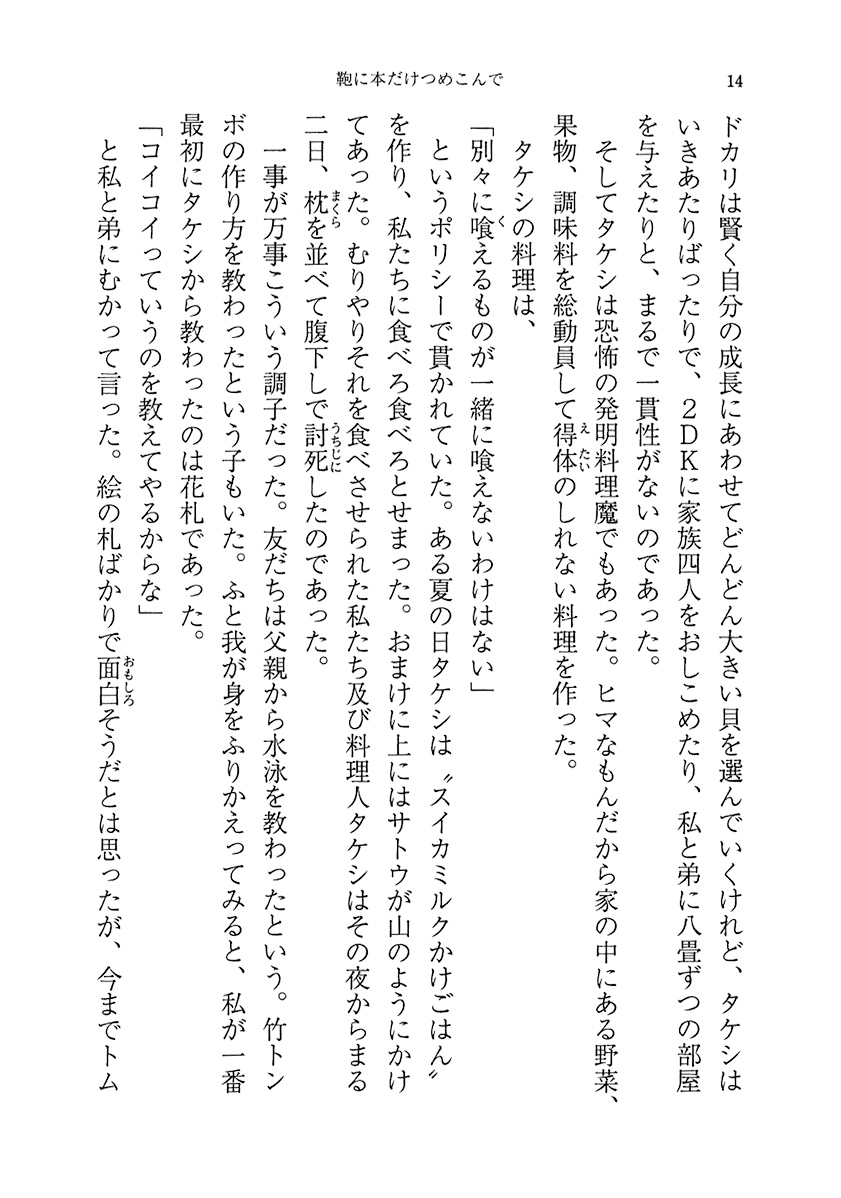 鞄に本だけつめこんで
14
ドカリは賢く自分の成長にあわせてどんどん大きい貝を選んでいくけれど、タケシは
いきあたりばったりで、2DKに家族四人をおしこめたり、私と弟に八畳ずつの部屋
を与えたりと、まるで一貫性がないのであった。
そしてタケシは恐怖の発明料理魔でもあった。ヒマなもんだから家の中にある野菜、
果物、調味料を総動員して得体のしれない料理を作った。
タケシの料理は、
「別々に喰えるものが一緒に喰えないわけはない」
というポリシーで貫かれていた。ある夏の日タケシは〝スイカミルクかけごはん〟
を作り、私たちに食べろ食べろとせまった。おまけに上にはサトウが山のようにかけ
てあった。むりやりそれを食べさせられた私たち及び料理人タケシはその夜からまる
二日、枕を並べて腹下しで討死したのであった。
一事が万事こういう調子だった。友だちは父親から水泳を教わったという。竹トン
ボの作り方を教わったという子もいた。ふと我が身をふりかえってみると、私が一番
最初にタケシから教わったのは花札であった。
「コイコイっていうのを教えてやるからな」
と私と弟にむかって言った。絵の札ばかりで面白そうだとは思ったが、今までトム